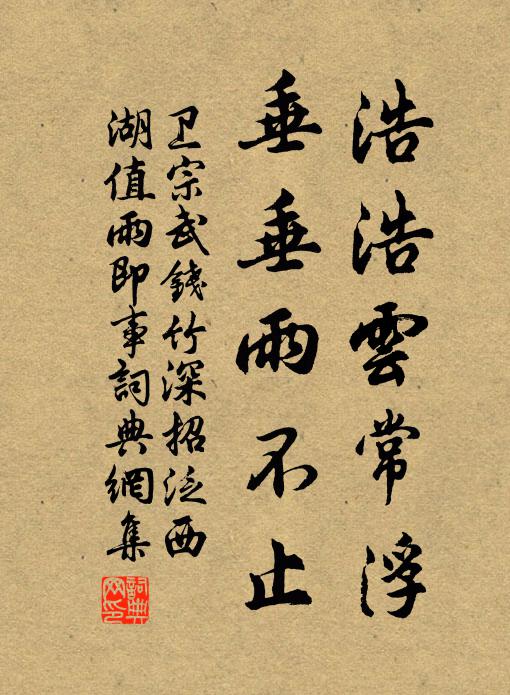 浩浩雲常浮
垂垂雨不止
卫宗武錢竹深招泛西
湖值雨即事詞典網集
詞典
网印